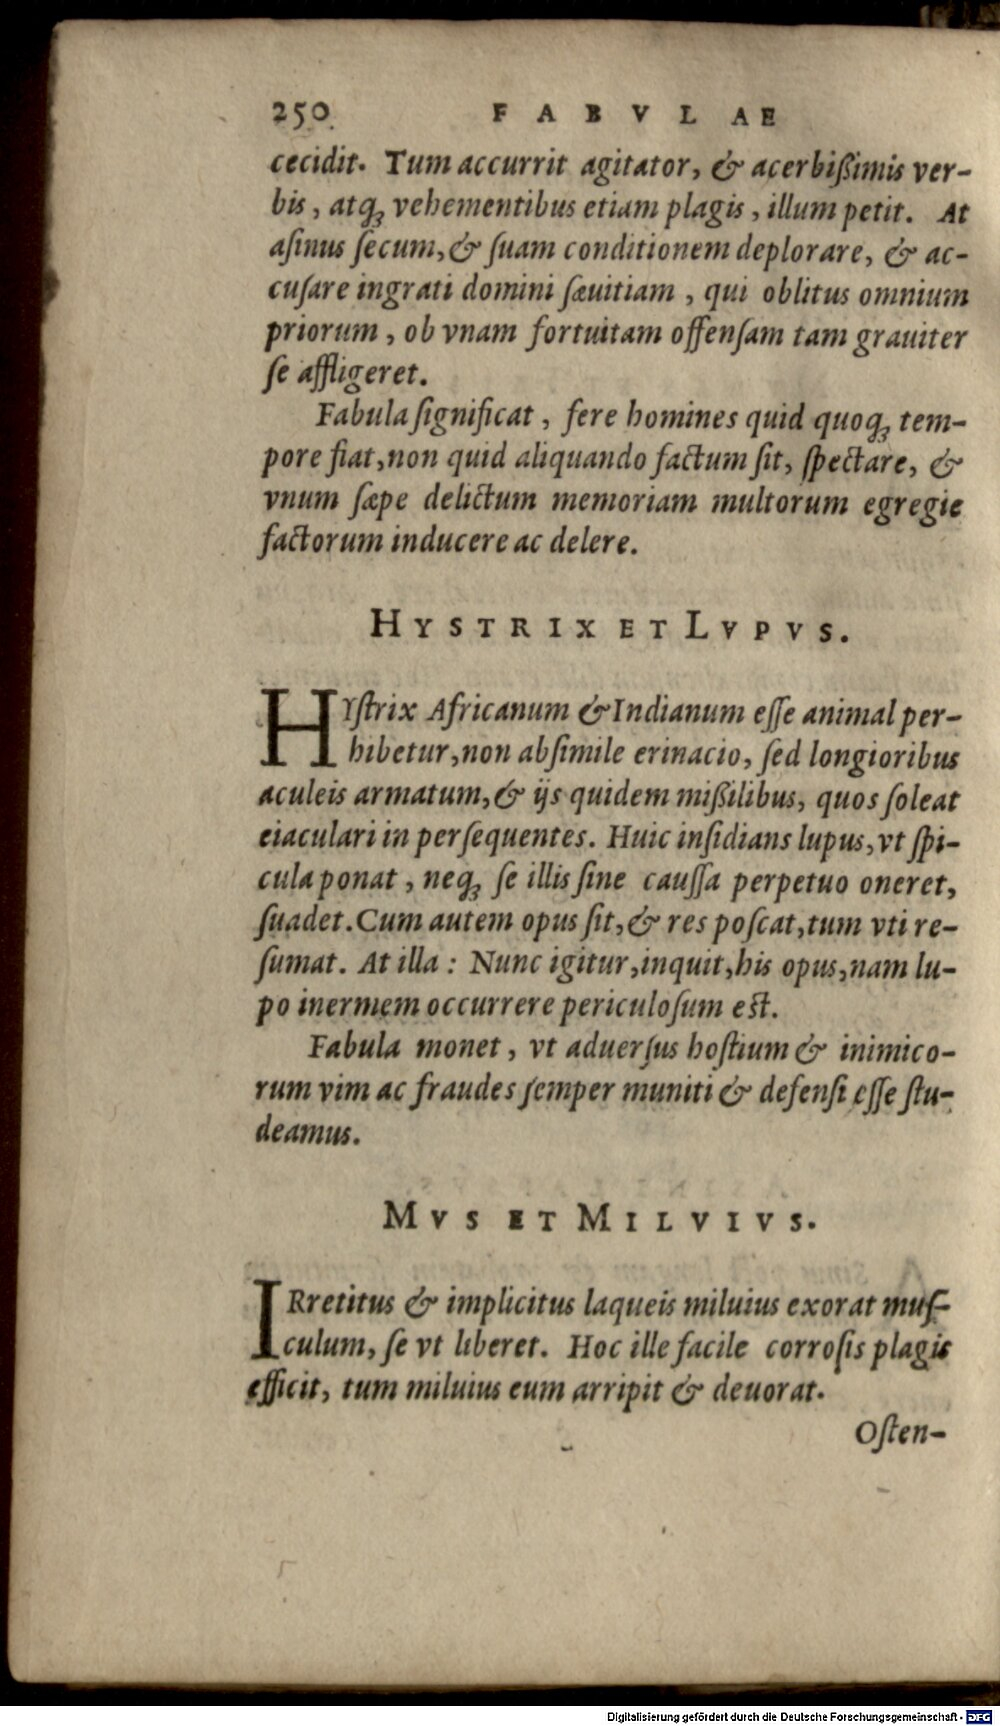 250 FABVLAE
cecidit. Tum accurrit agitator, & acerbißimis ver-
bis, atqꝫ vehementibus etiam plagis, illum petit. At
aſinus ſecum, & ſuam conditionem deplorare, & ac-
cuſare ingrati domini ſæuitiam, qui oblitus omnium
priorum, ob vnam fortuitam offenſam tam grauiter
ſe affligeret.
Fabula ſignificat, fere homines quid quoqꝫ tem-
pore fiat, non quid aliquando factum ſit, ſpectare, &
vnum ſæpe delictum memoriam multorum egregie
factorum inducere ac delere.
HYSTRIX ET LVPVS.
HYſtrix Africanum & Indianum eſſe animal per-
hibetur, non abſimile erinacio, ſed longioribus
aculeis armatum, & ijs quidem mißilibus, quos ſoleat
eiaculari in perſequentes. Huic inſidians lupus, vt ſpi-
cula ponat, neqꝫ ſe illis ſine cauſſa perpetuo oneret,
ſuadet. Cum autem opus ſit, & res poſcat, tum vti re-
ſumat. At illa: Nunc igitur, inquit, his opus, nam lu-
po inermem occurrere periculoſum eſt.
Fabula monet, vt aduerſus hoſtium & inimico-
rum vim ac fraudes ſemper muniti & defenſi eſſe ſtu-
deamus.
MVS ET MILVIVS.
IRretitus & implicitus laqueis miluius exorat muſ-
culum, ſe vt liberet. Hoc ille facile corroſis plagis
efficit, tum miluius eum arripit & deuorat.
Oſten-
Digitalisierung gefördert durch die Deutsche Forschungsgemeinschaft - DFG